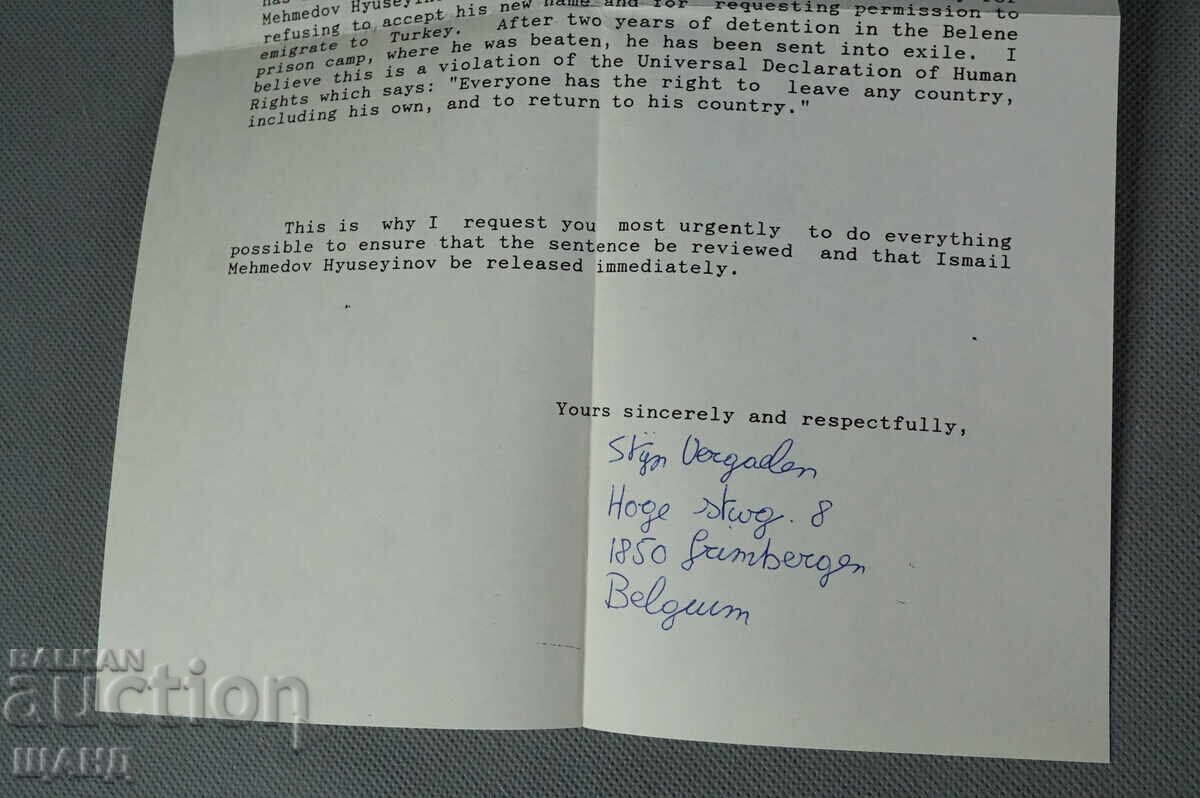 has
Mehmedov Hyuseyinov for
refusing to accept his new name and for requesting permission to
emigrate to Turkey. After two years of detention in the Belene
prison camp, where he was beaten, he has been sent into exile. I
believe this is a violation of the Universal Declaration of Human
Rights which says: "Everyone has the right to leave any country,
including his own, and to return to his country."
This is why I request you most urgently to do everything
possible to ensure that the sentence be reviewed and that Ismail
Mehmedov Hyuseyinov be released immediately.
Yours sincerely and respectfully,
Stijn Vergaelen
Hoge stwg. 8
1850 Grimbergen
Belgium
BALKAN
auction
ШАНД